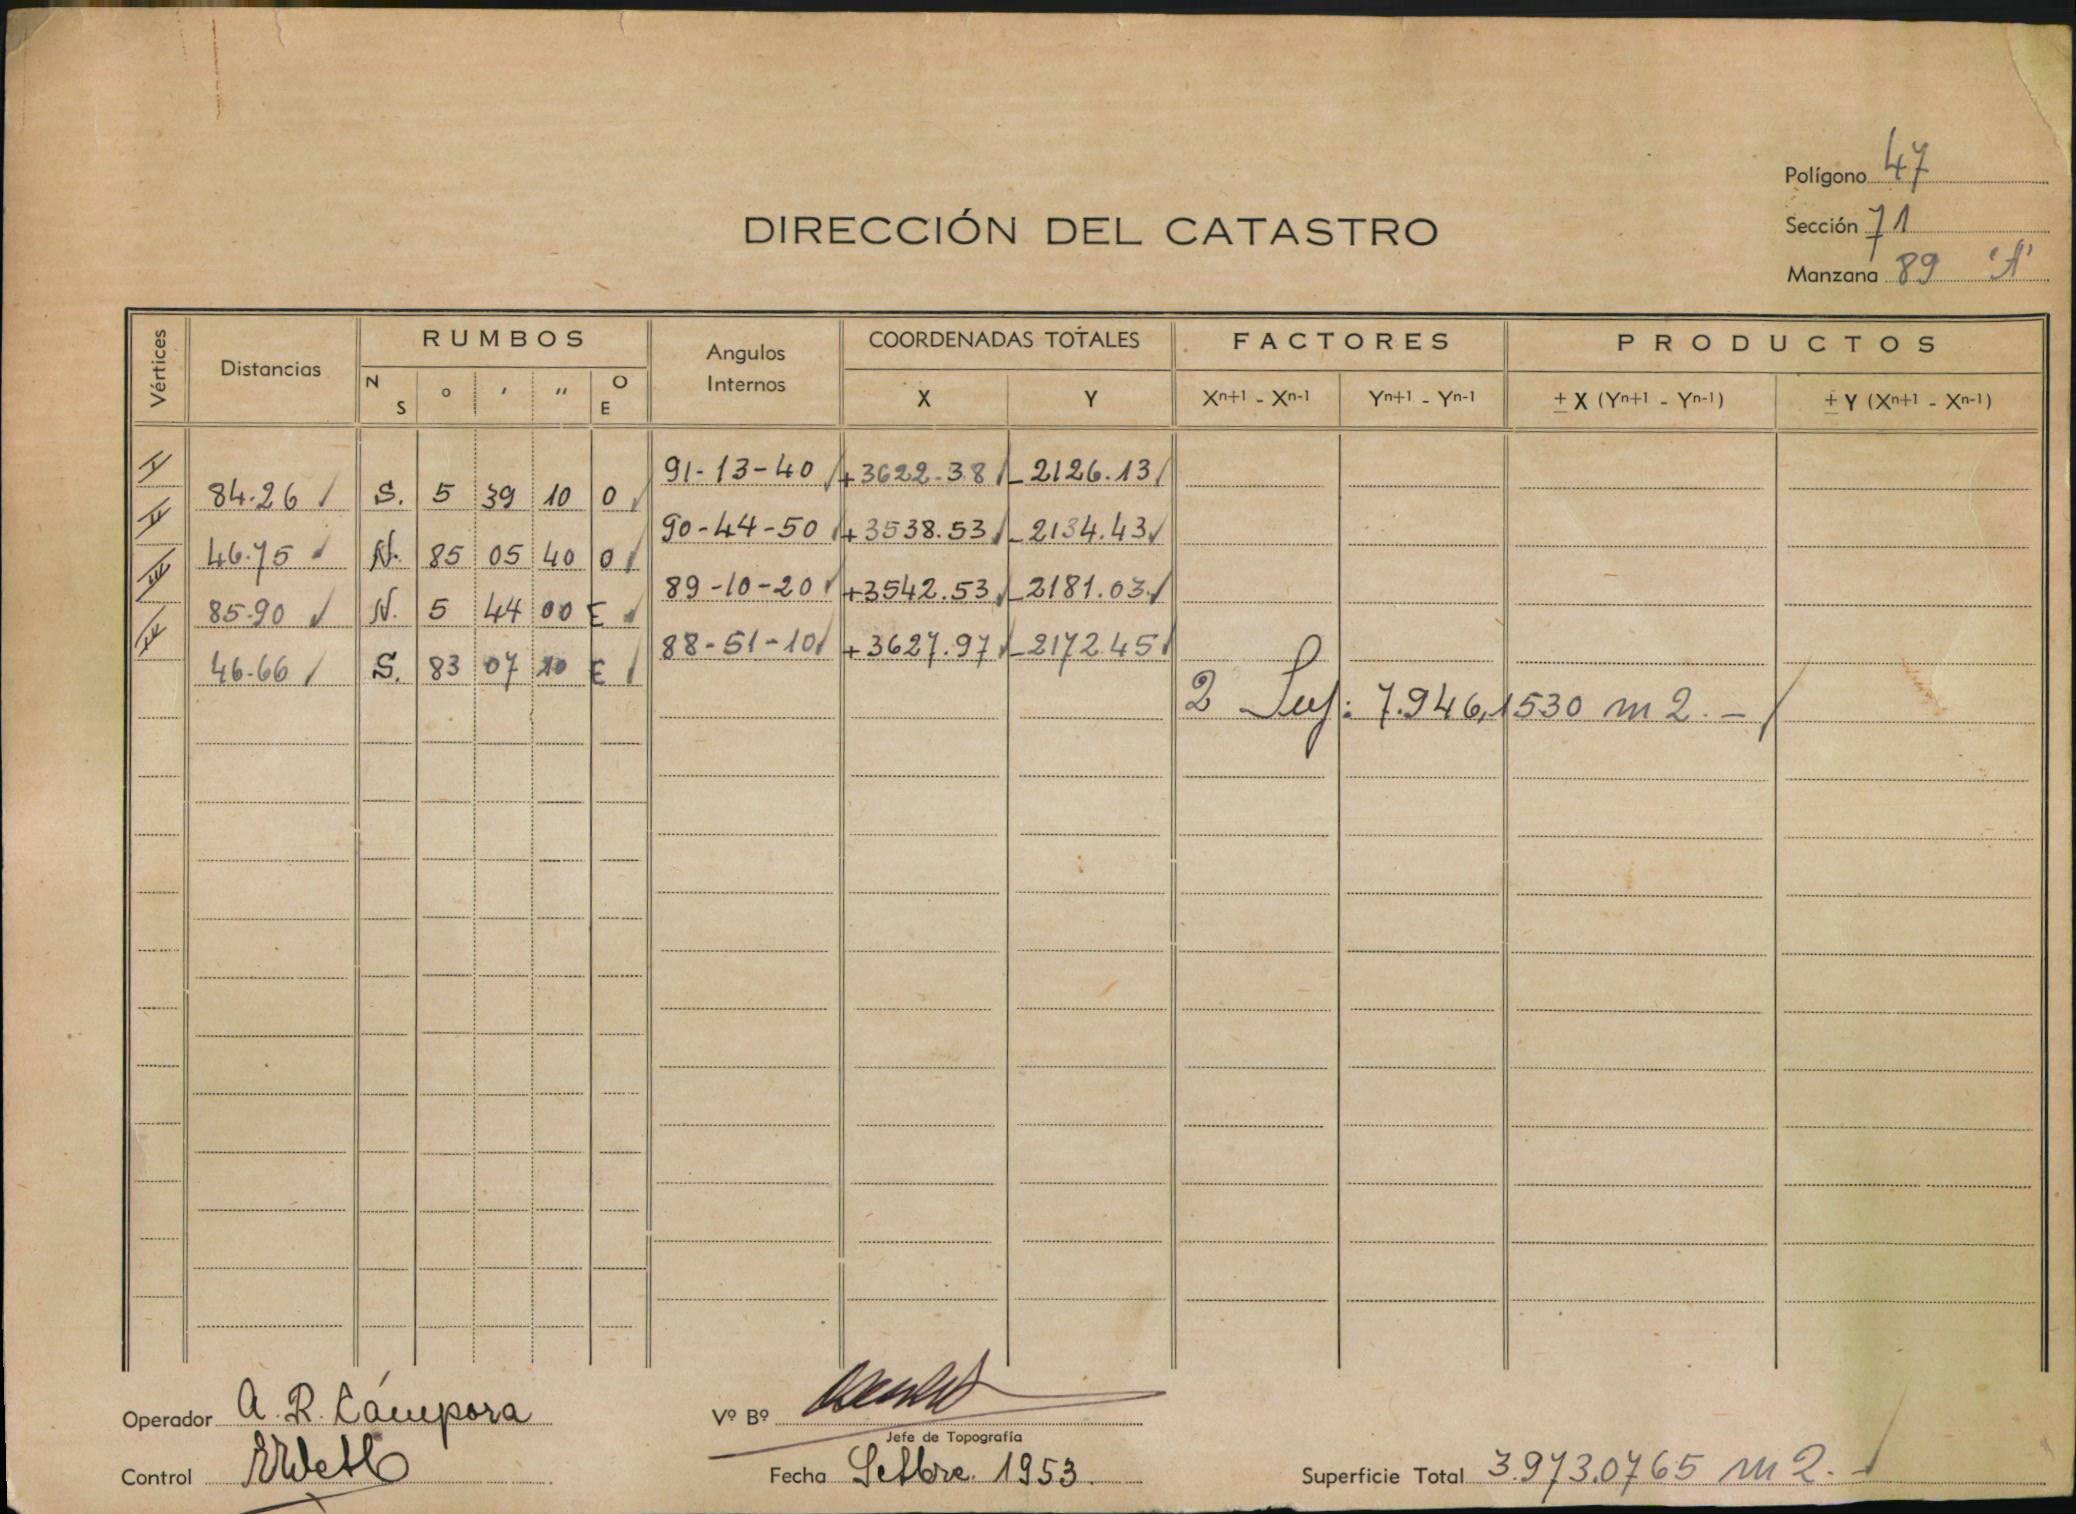 Polígono 47
DIRECCIÓN DEL CATASTRO
Sección 71
Manzana 89 "A"
Vértices Distancias RUMBOS Angulos Internos COORDENADAS TOTALES FACTORES PRODUCTOS
N S ° ' " O E X Y Xn+1 - Xn-1 Yn+1 - Yn-1 ± X (Yn+1 - Yn-1) ± Y (Xn+1 - Xn-1)
I 91-13-40 +3622.38 -2126.13
84.26 S. 5 39 10 O
II 90-44-50 +3538.53 -2134.43
46.75 N. 85 05 40 O
III 89-10-20 +3542.53 -2181.03
85.90 N. 5 44 00 E
IV 88-51-10 +3627.97 -2172.45
46.66 S. 83 07 10 E
2 Sup: 7.946,1530 m2.-
Operador A. R. Cámpora
Vº Bº
Jefe de Topografía
Control
Fecha Setbre. 1953.
Superficie Total 3.973.0765 m2.-